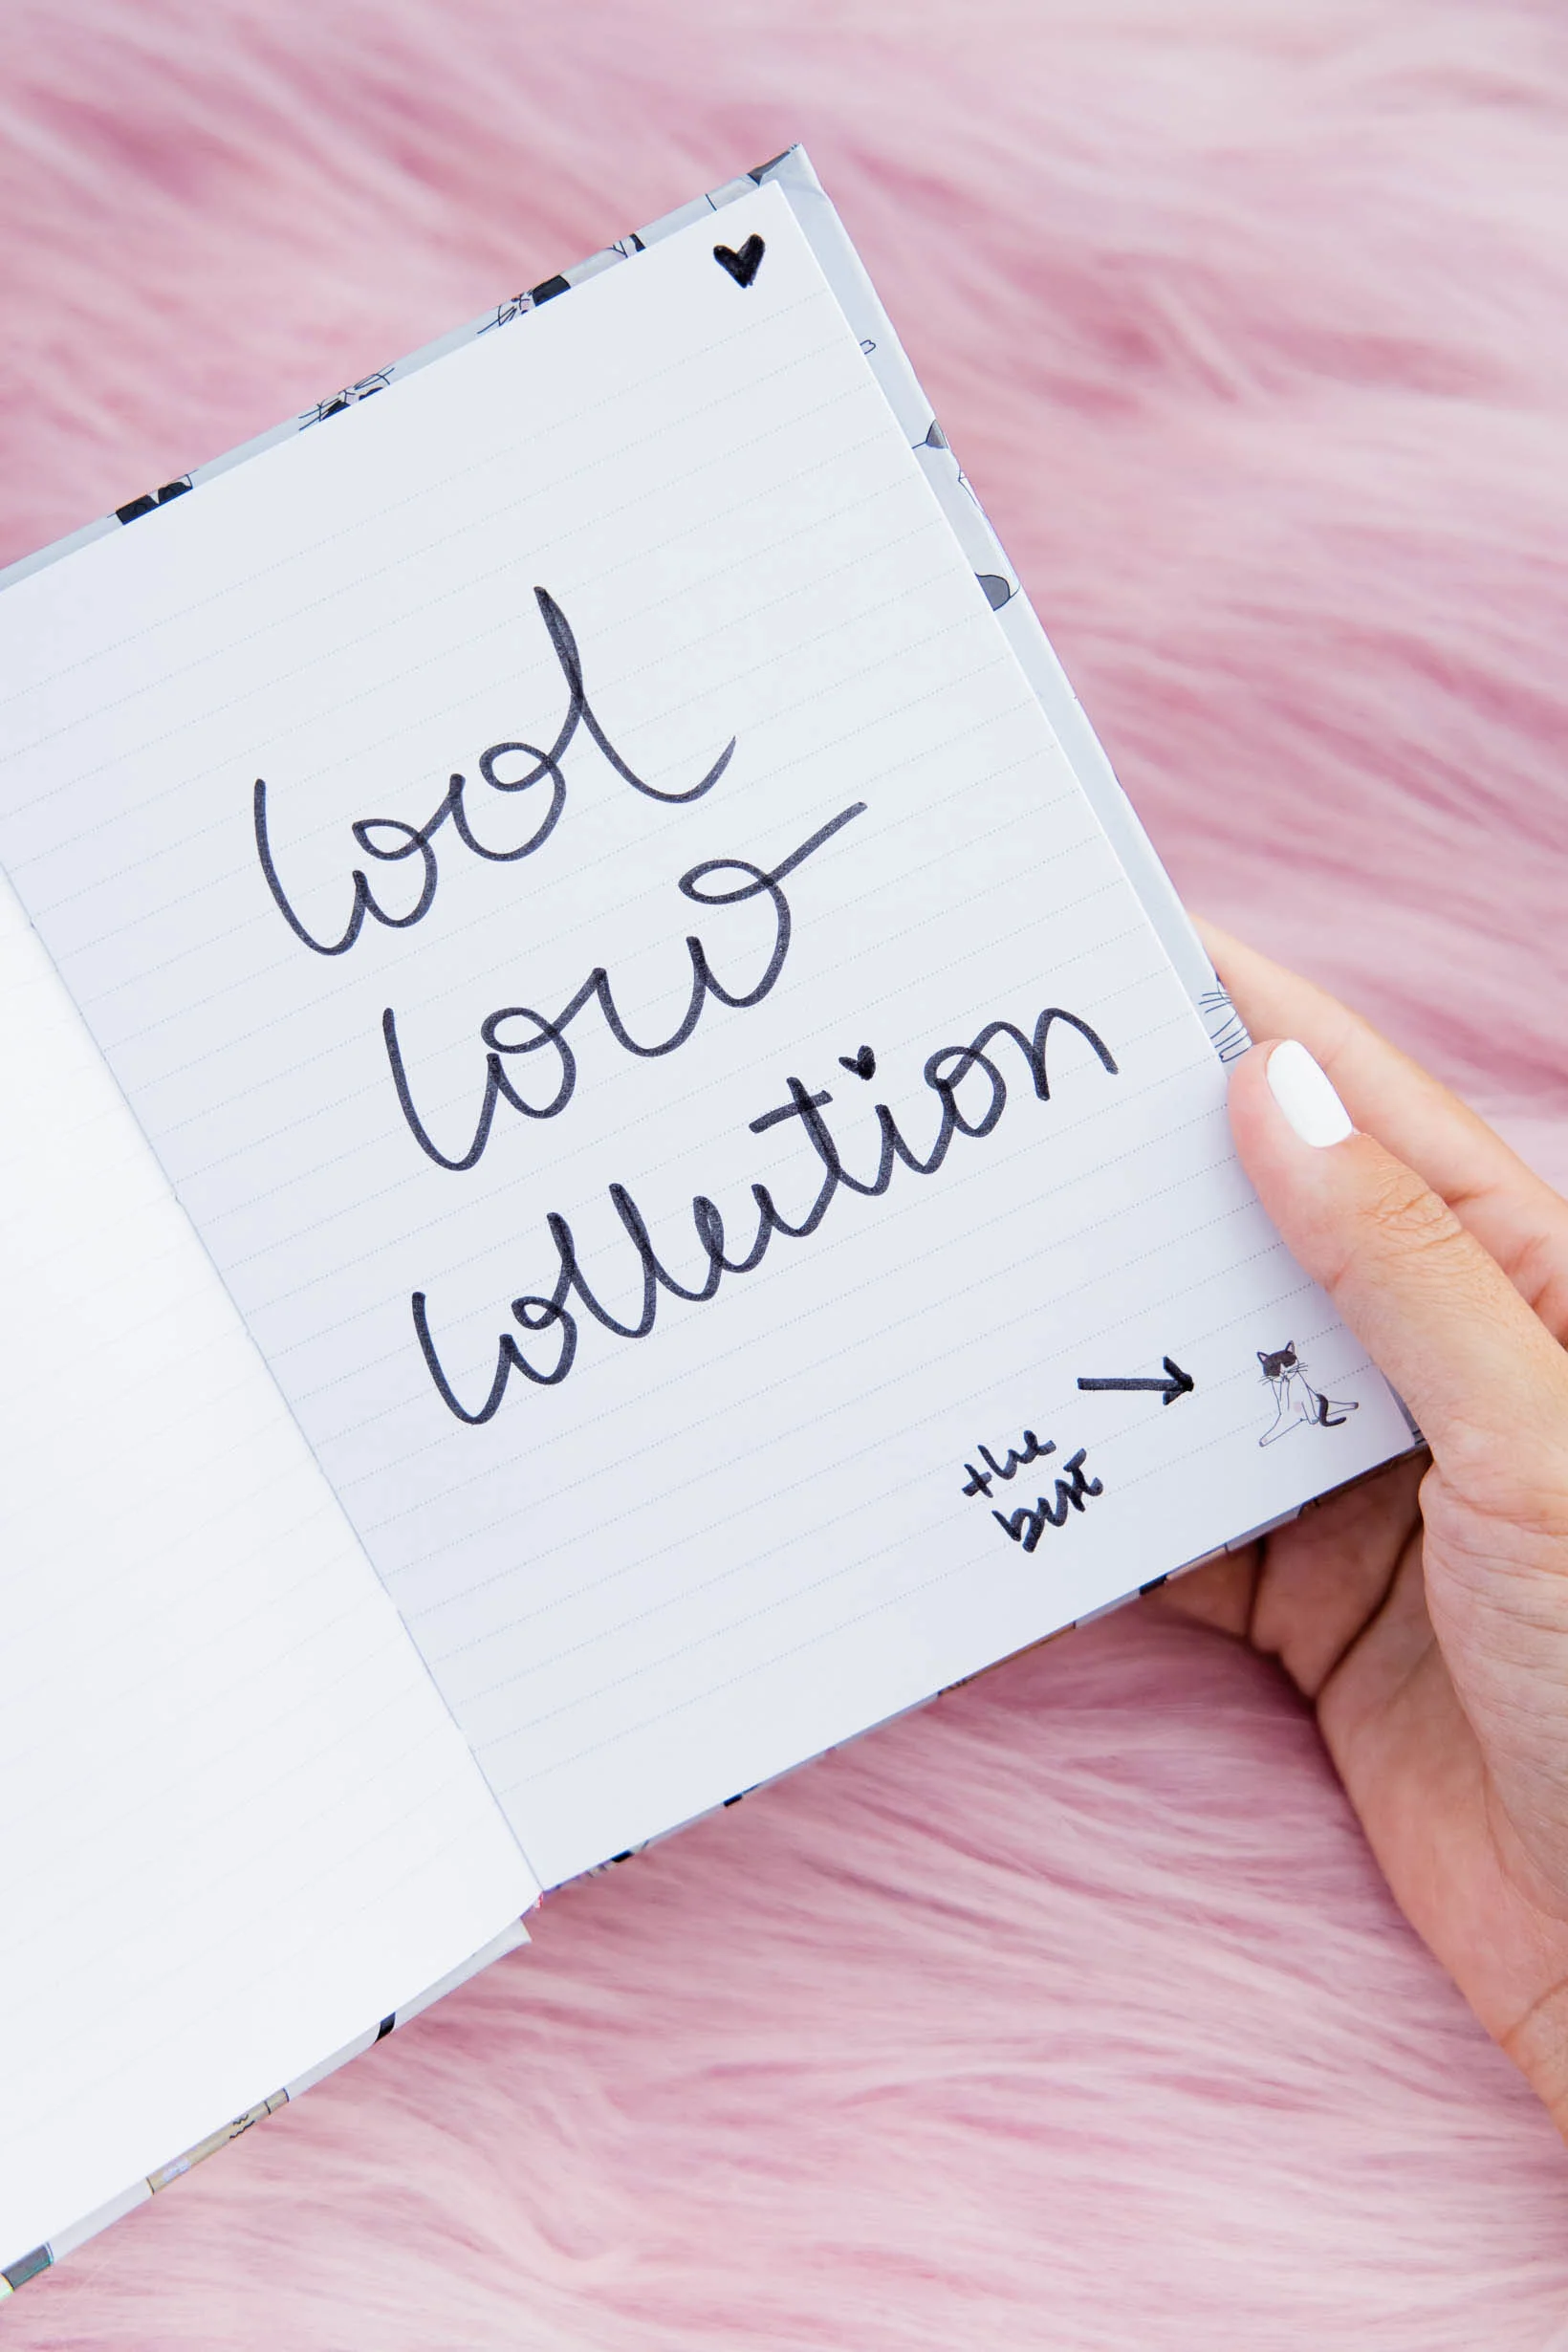 Cool
Cow
Collection
the
best